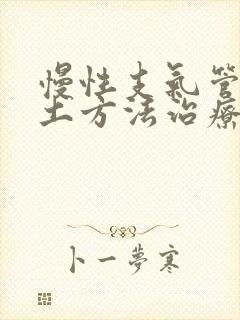 慢性支氣管
土方法治療
卜一夢寒